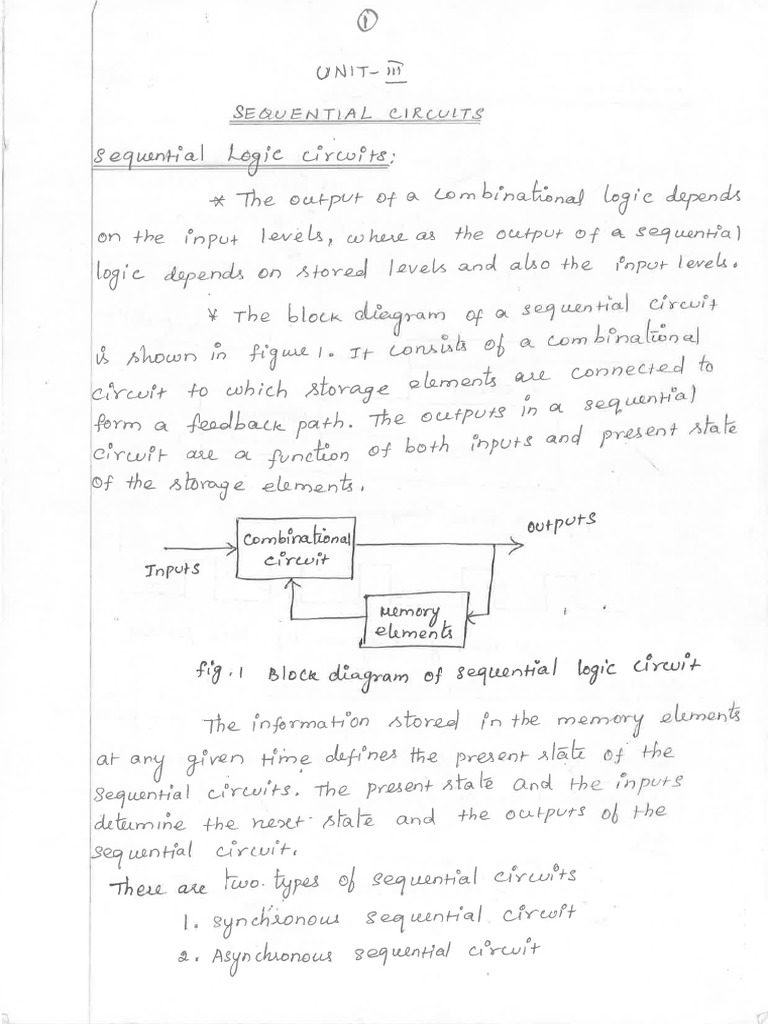 1
UNIT-III
SEQUENTIAL CIRCUITS
Sequential Logic circuits:
* The output of a combinational logic depends
on the input levels, where as the output of a sequential
logic depends on stored levels and also the input levels.
* The block diagram of a sequential circuit
is shown in figure 1. It consists of a combinational
circuit to which storage elements are connected to
form a feedback path. The outputs in a sequential
circuit are a function of both inputs and present state
of the storage elements.
Inputs
Combinational
circuit
outputs
Memory
elements
fig.1 Block diagram of sequential logic circuit
The information stored in the memory elements
at any given time defines the present state of the
sequential circuits. The present state and the inputs
determine the next state and the outputs of the
sequential circuit.
There are two types of sequential circuits
1. synchronous sequential circuit
2. Asynchronous sequential circuit